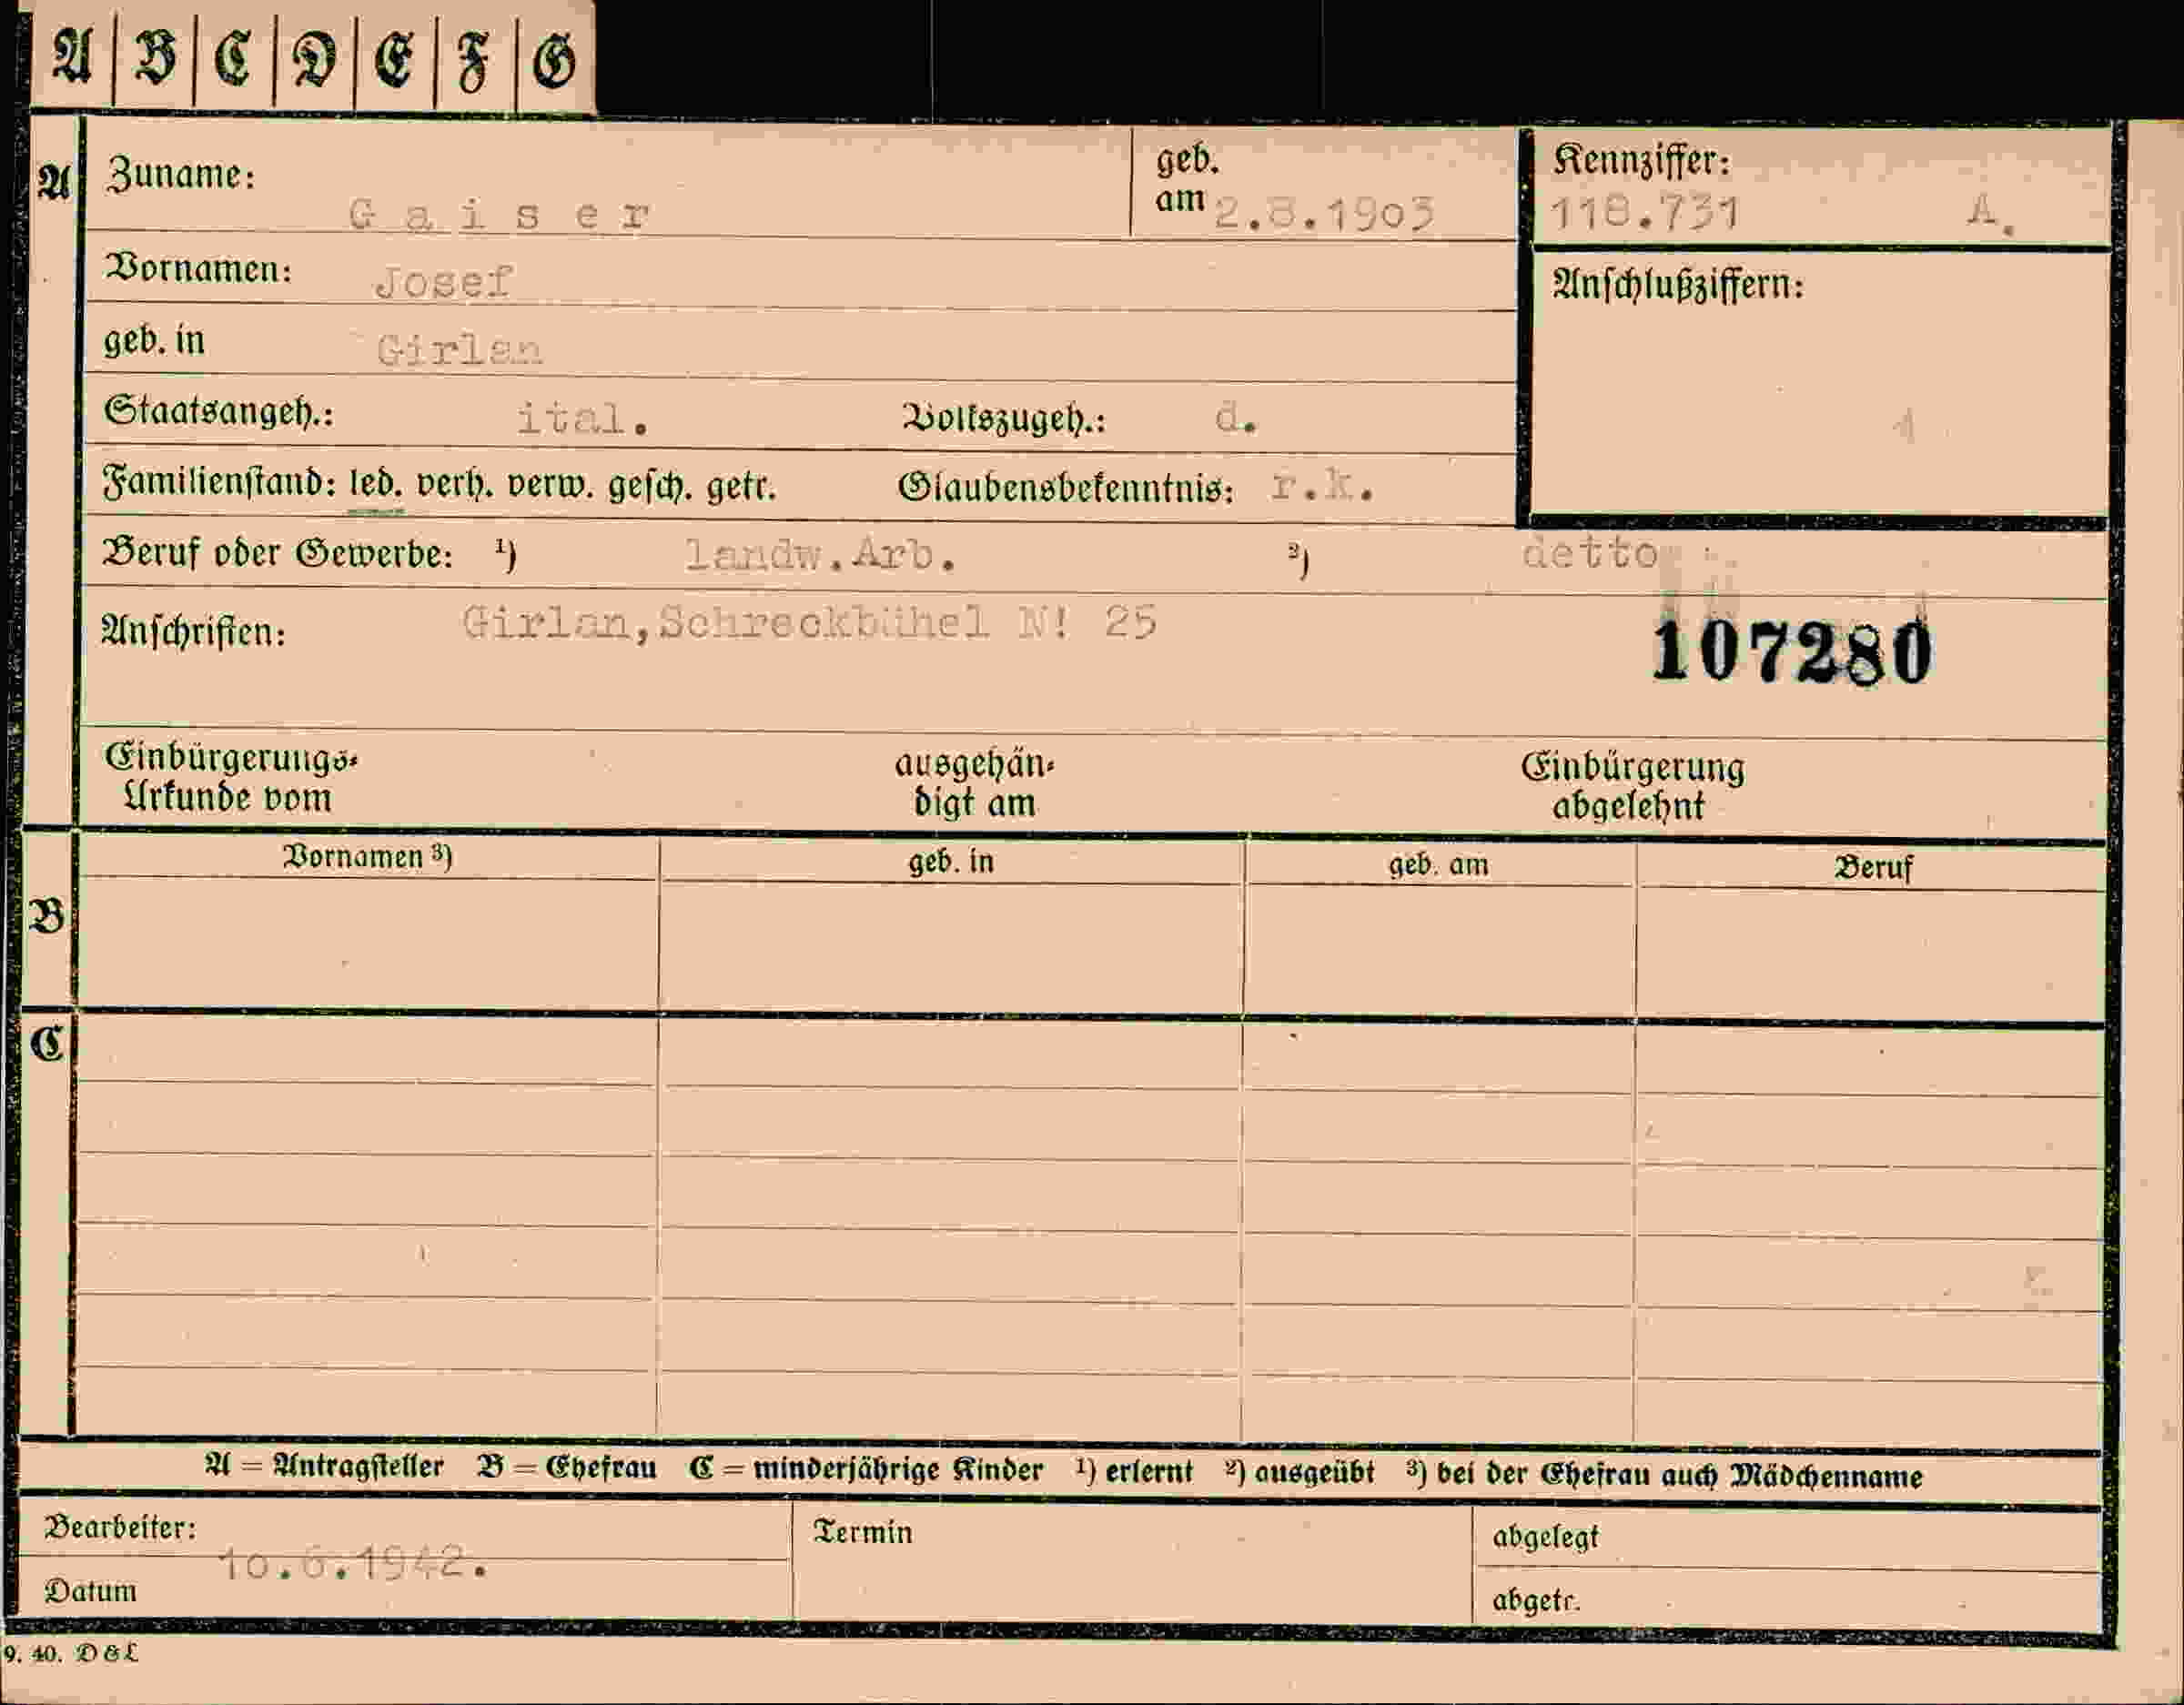 A B C D E F G
A Zuname: Gaiser geb. am 2.8.1903 Kennziffer: 118.731 A.
Vornamen: Josef Anschlußziffern: 1
geb. in Girlan
Staatsangeh.: ital. Volkszugeh.: d.
Familienstand: led. verh. verw. gesch. getr. Glaubensbekenntnis: r.k.
Beruf oder Gewerbe: ¹) landw.Arb. ²) detto
Anschriften: Girlan,Schreckbühel N! 25
107280
Einbürgerungs- Urkunde vom ausgehän- digt am Einbürgerung abgelehnt
Vornamen ³) geb. in geb. am Beruf
B
C
A = Antragsteller B = Ehefrau C = minderjährige Kinder ¹) erlernt ²) ausgeübt ³) bei der Ehefrau auch Mädchenname
Bearbeiter: Termin abgelegt
10.6.1942.
Datum abgetr.
9. 40. D&L